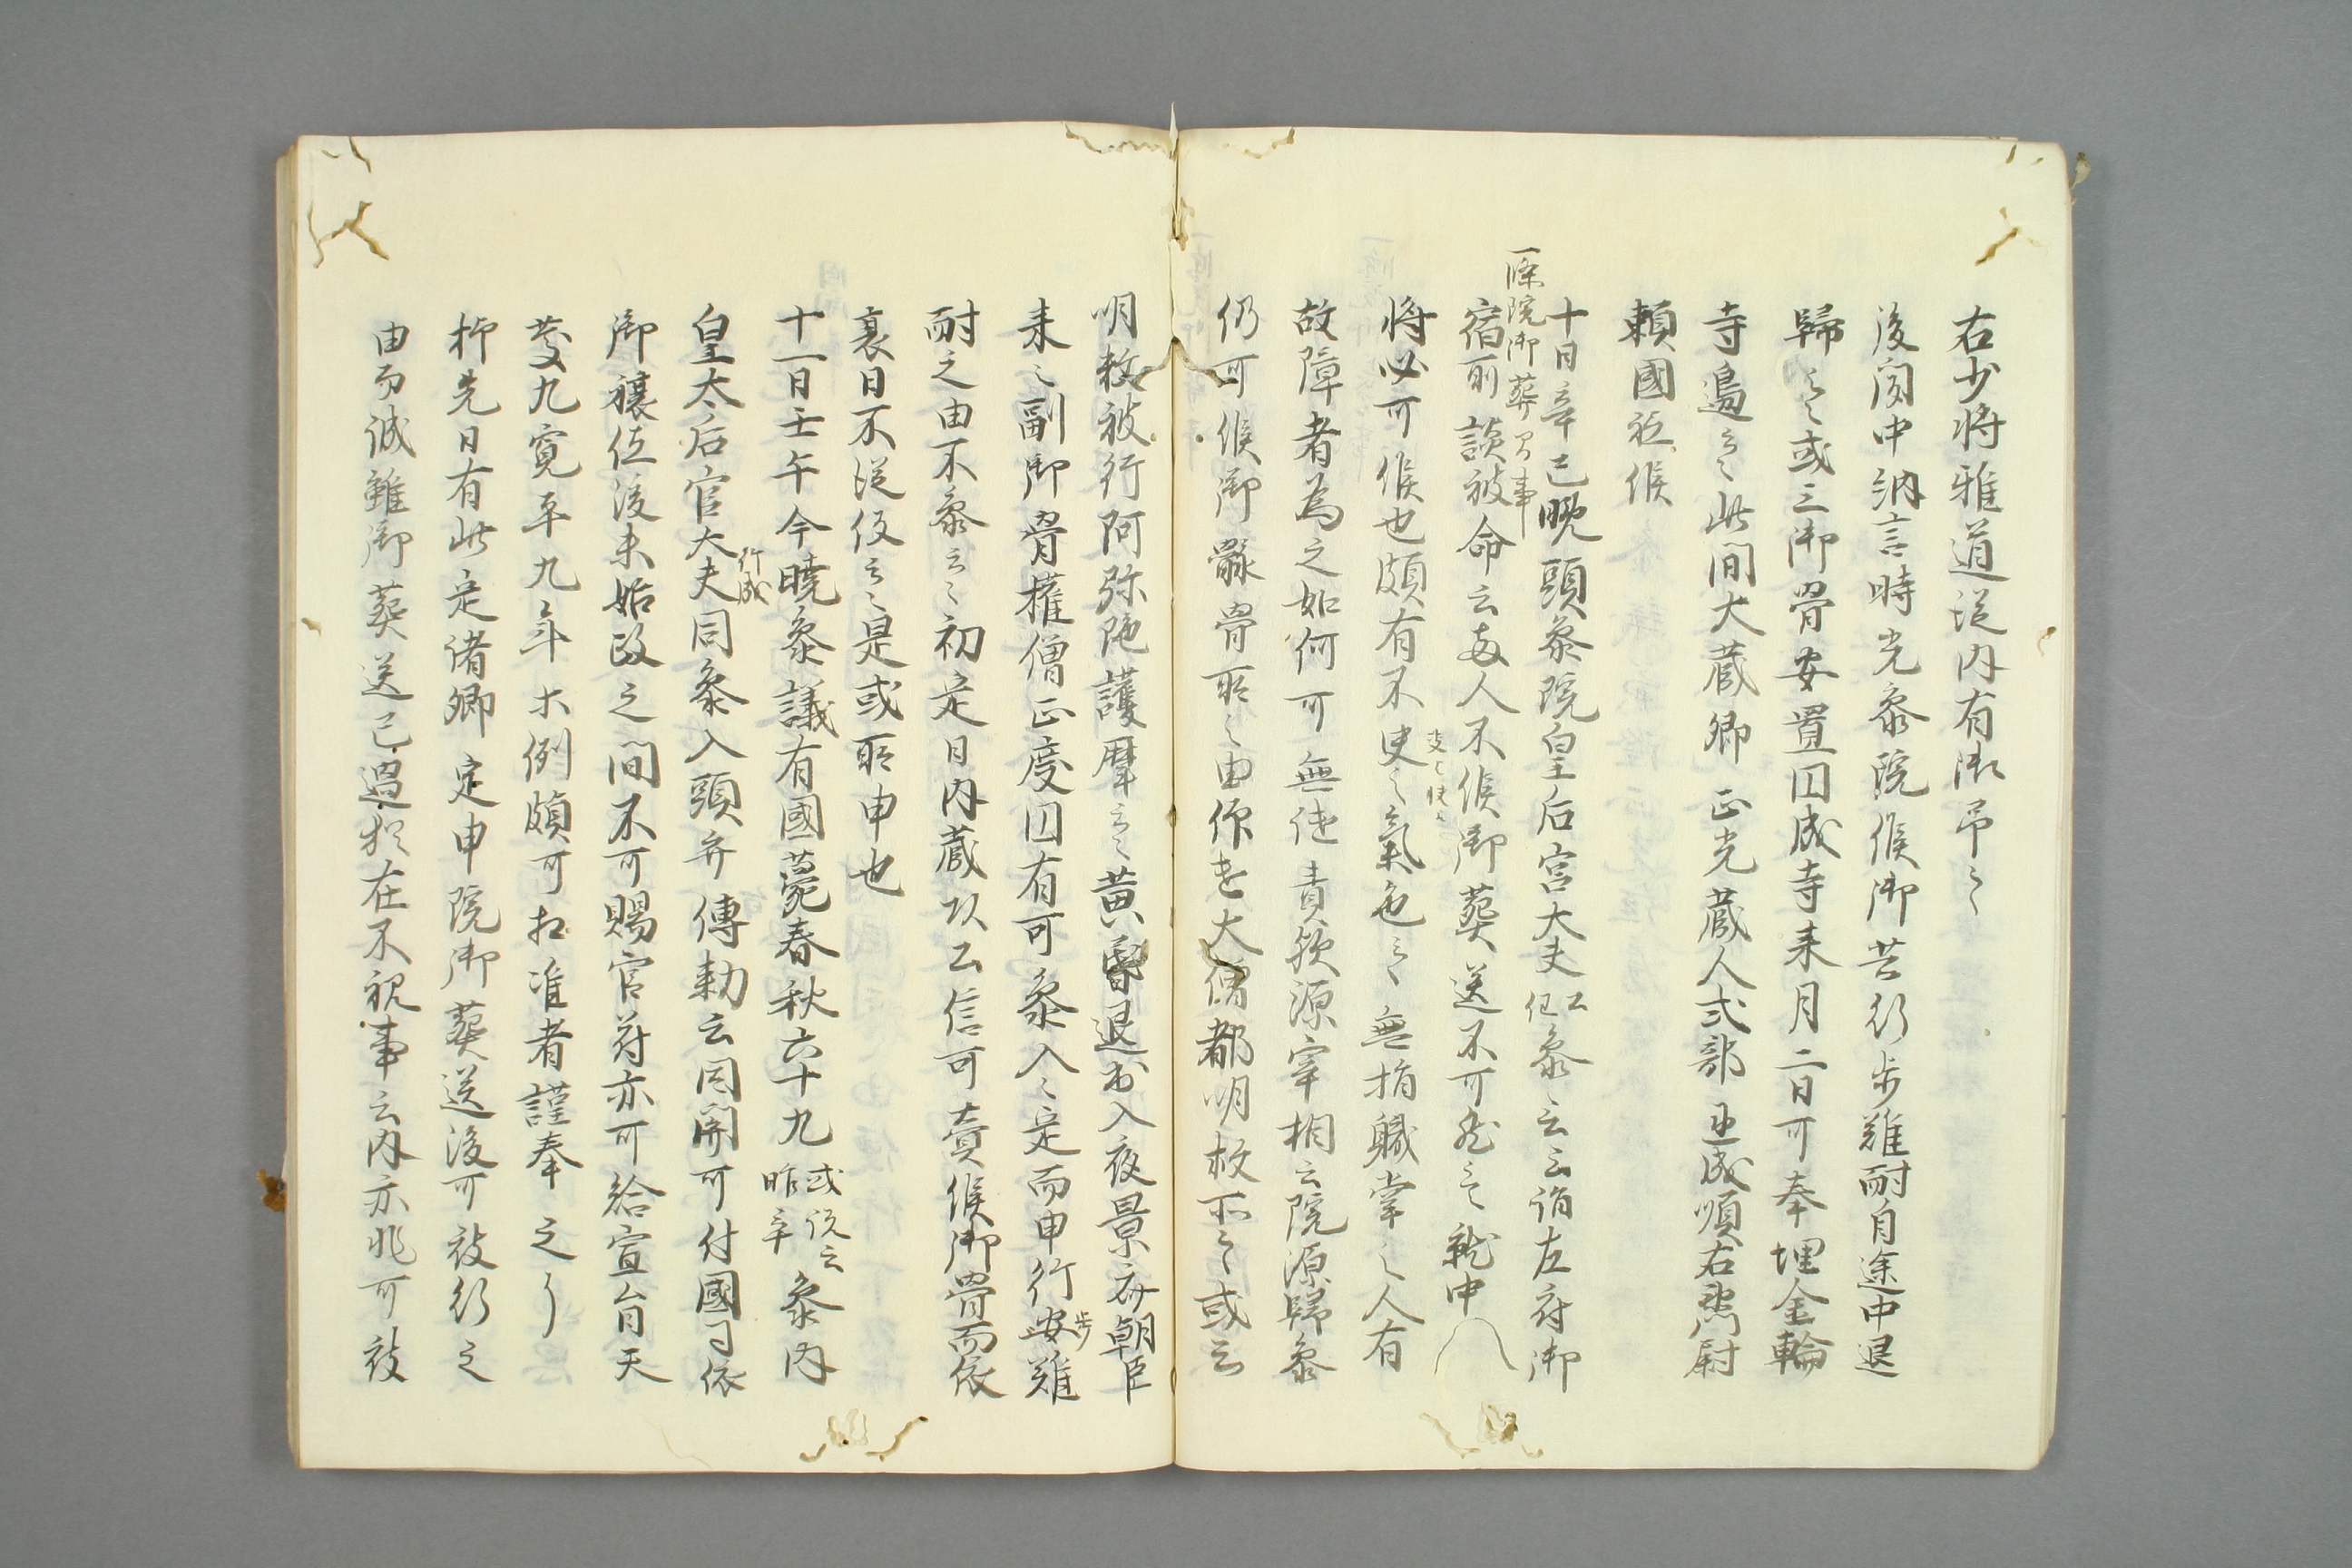 右少将雅道従内有御弔々
後聞中納言時光参院候御共行歩難耐自途中退
歸云々或云御骨安置円成寺来月二日可奉埋金輪
寺邊云々此間大蔵卿正光蔵人式部丞成順右兵衛尉
頼國祗候
一條院御葬間事
十日辛巳晩頭参院皇后宮大夫公任参云云詣左府御
宿所談被命云両人不候御葬送不可然云々就中
将必可候也頗有不快々氣色云々無指職掌之人有
故障者為之如何可無徒責欤源宰相云院源歸参
仍可候御骸骨所之由作是大僧都明救所云々或云
明救被行阿弥陀護摩云々黄昏退出入夜景斉朝臣
来云副御骨権僧正慶円有可参入之定而申行歩難
耐之由不参云々初定日内蔵頭公信可賣候御骨而依
衰日不従役云々是或所申也
十一日壬午今暁参議有國薨春秋六十九或説云昨辛参内
皇太后宮大夫行成同参入頭弁傳勅云固関可付國司依
御禳位後未始政之間不可賜官符亦可給宣旨天
慶九寛平九年木例頗可相准者謹奉之了
抑先日有此定諸卿定申院御葬送後可被行之
由而誠雖御葬送已過猶在不視事云内亦非可被